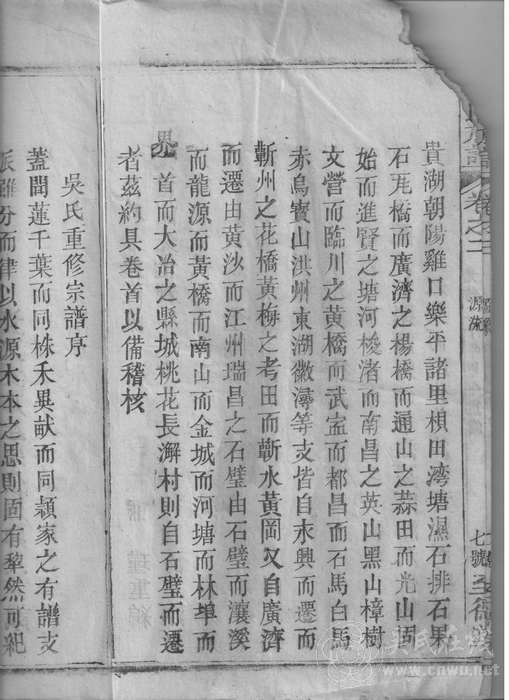 族譜 卷之二 源流 七號 至德堂
貴湖朝陽雞口樂平諸里楨田湾塘濕石排石果
石瓦橋而廣濟之楊橋而通山之蒜田而光山固
始而進賢之塘河梭渚而南昌之英山黑山樟樹
文營而臨川之黃橋而武寍而都昌而石馬白馬
赤烏寳山洪州東湖徽潯等支皆自永興而遷而
蘄州之花橋黃梅之考田而蘄水黃岡又自廣濟
而遷由黃沙而江州瑞昌之石璧由石璧而瀼溪
而龍源而黃橋而南山而金城而河塘而林埠而
界首而大冶之縣城桃花長澥村則自石璧而遷
者茲約具卷首以備稽核
吳氏重修宗譜序
蓋聞蓮千葉而同株禾異畝而同穎家之有譜支
派雖分而律以水源木本之思則固有犂然可紀
吴氏在线
www.cnwu.net